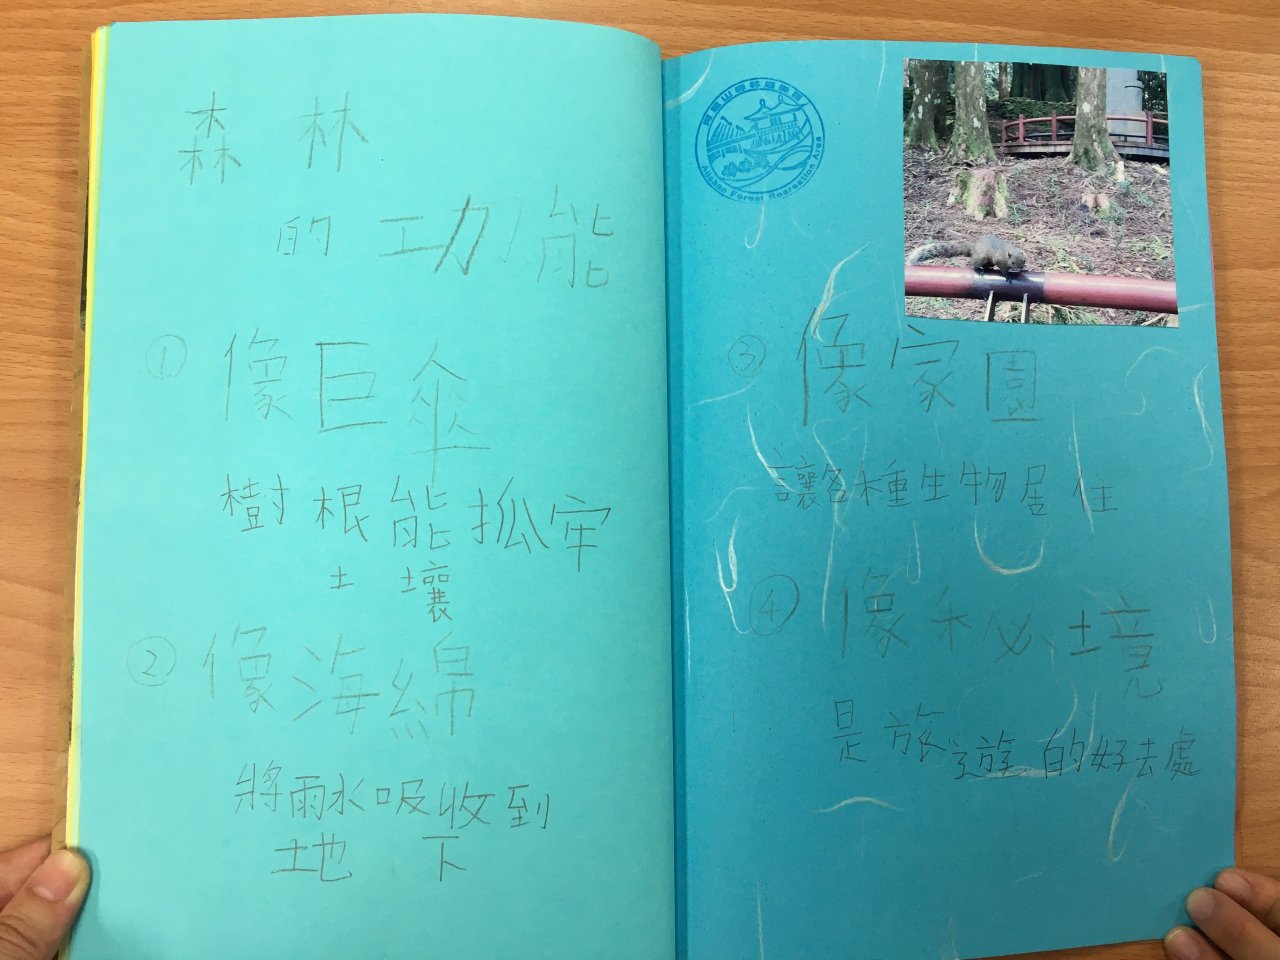 森林
的功能
① 像巨傘
樹根能抓牢
土壤
② 像海綿
將雨水吸收到
土地下
阿里山森林遊樂區
Alishan Forest Recreation Area
③ 像家園
讓各種生物居住
④ 像秘境
是旅遊的好去處